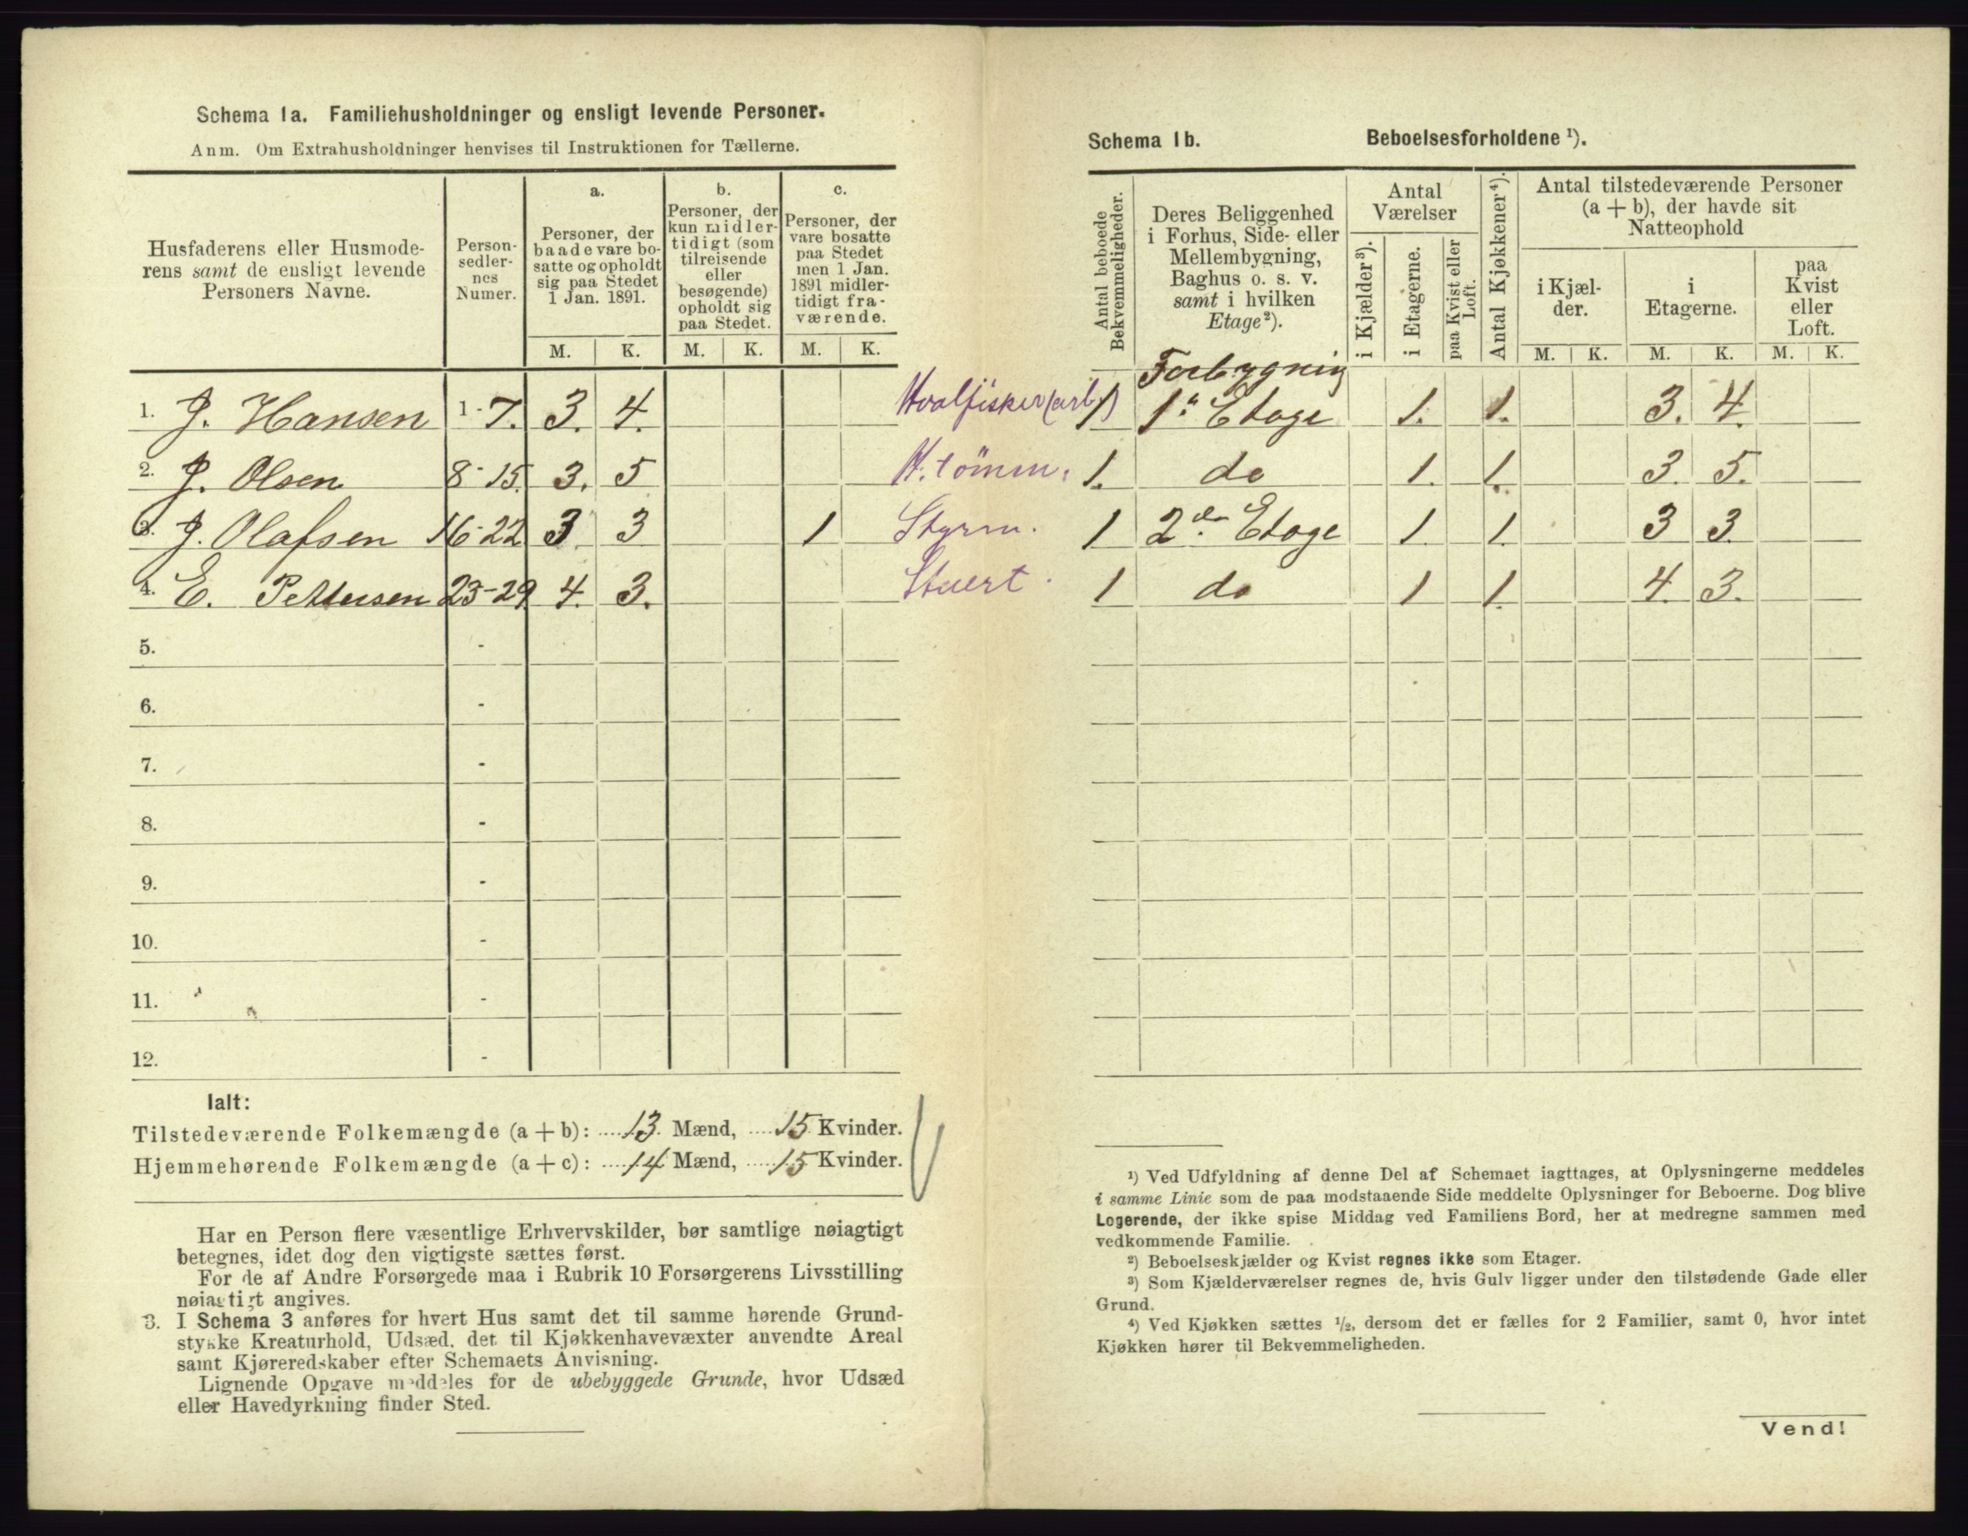 Schema 1a. Familiehusholdninger og ensligt levende Personer.
Anm. Om Extrahusholdninger henvises til Instruktionen for Tællerne.
Husfaderens eller Husmode-
rens samt de ensligt levende
Personers Navne.
Person-
sedler-
nes
Numer.
a.
Personer, der
baade vare bo-
satte og opholdt
sig paa Stedet
1 Jan. 1891.
b.
Personer, der
kun midler-
tidigt (som
tilreisende
eller
besøgende)
opholdt sig
paa Stedet.
c.
Personer, der
vare bosatte
paa Stedet
men 1 Jan.
1891 midler-
tidigt fra-
værende.
M. K. M. K. M. K.
1. J. Hansen 1-7. 3. 4.
2. J. Olsen 8-15. 3. 5
3. J. Olafsen 16-22 3 3 1
4. E. Pettersen 23-29 4. 3.
5. -
6. -
7. -
8. -
9. -
10. -
11. -
12. -
Ialt:
Tilstedeværende Folkemængde (a + b): 13. Mænd, 15 Kvinder.
Hjemmehørende Folkemængde (a + c): 14 Mænd, 15 Kvinder.
Har en Person flere væsentlige Erhvervskilder, bør samtlige nøiagtigt
betegnes, idet dog den vigtigste sættes først.
For de af Andre Forsørgede maa i Rubrik 10 Forsørgerens Livsstilling
nøiagtigt angives.
3. I Schema 3 anføres for hvert Hus samt det til samme hørende Grund-
stykke Kreaturhold, Udsæd, det til Kjøkkenhavevæxter anvendte Areal
samt Kjøreredskaber efter Schemaets Anvisning.
Lignende Opgave meddeles for de ubebyggede Grunde, hvor Udsæd
eller Havedyrkning finder Sted.
Schema 1b. Beboelsesforholdene ¹).
Antal beboede
Bekvemmeligheder.
Deres Beliggenhed
i Forhus, Side- eller
Mellembygning,
Baghus o. s. v.
samt i hvilken
Etage²).
Antal
Værelser
i Kjælder³).
i Etagerne.
paa Kvist eller
Loft.
Antal Kjøkkener⁴).
Antal tilstedeværende Personer
(a + b), der havde sit
Natteophold
i Kjæl-
der.
i
Etagerne.
paa
Kvist
eller
Loft.
M. K. M. K. M. K.
Forbygning
Hvalfisker (arb.) 1 1ª Etage 1. 1. 3. 4.
H. tömm. 1. do 1. 1. 3. 5.
Styrm. 1 2den Etage 1 1. 3 3.
Stuert. 1 do 1 1. 4. 3.
¹) Ved Udfyldning af denne Del af Schemaet iagttages, at Oplysningerne meddeles
i samme Linie som de paa modstaaende Side meddelte Oplysninger for Beboerne. Dog blive
Logerende, der ikke spise Middag ved Familiens Bord, her at medregne sammen med
vedkommende Familie.
²) Beboelseskjælder og Kvist regnes ikke som Etager.
³) Som Kjælderværelser regnes de, hvis Gulv ligger under den tilstødende Gade eller
Grund.
⁴) Ved Kjøkken sættes ½, dersom det er fælles for 2 Familier, samt 0, hvor intet
Kjøkken hører til Bekvemmeligheden.
Vend!